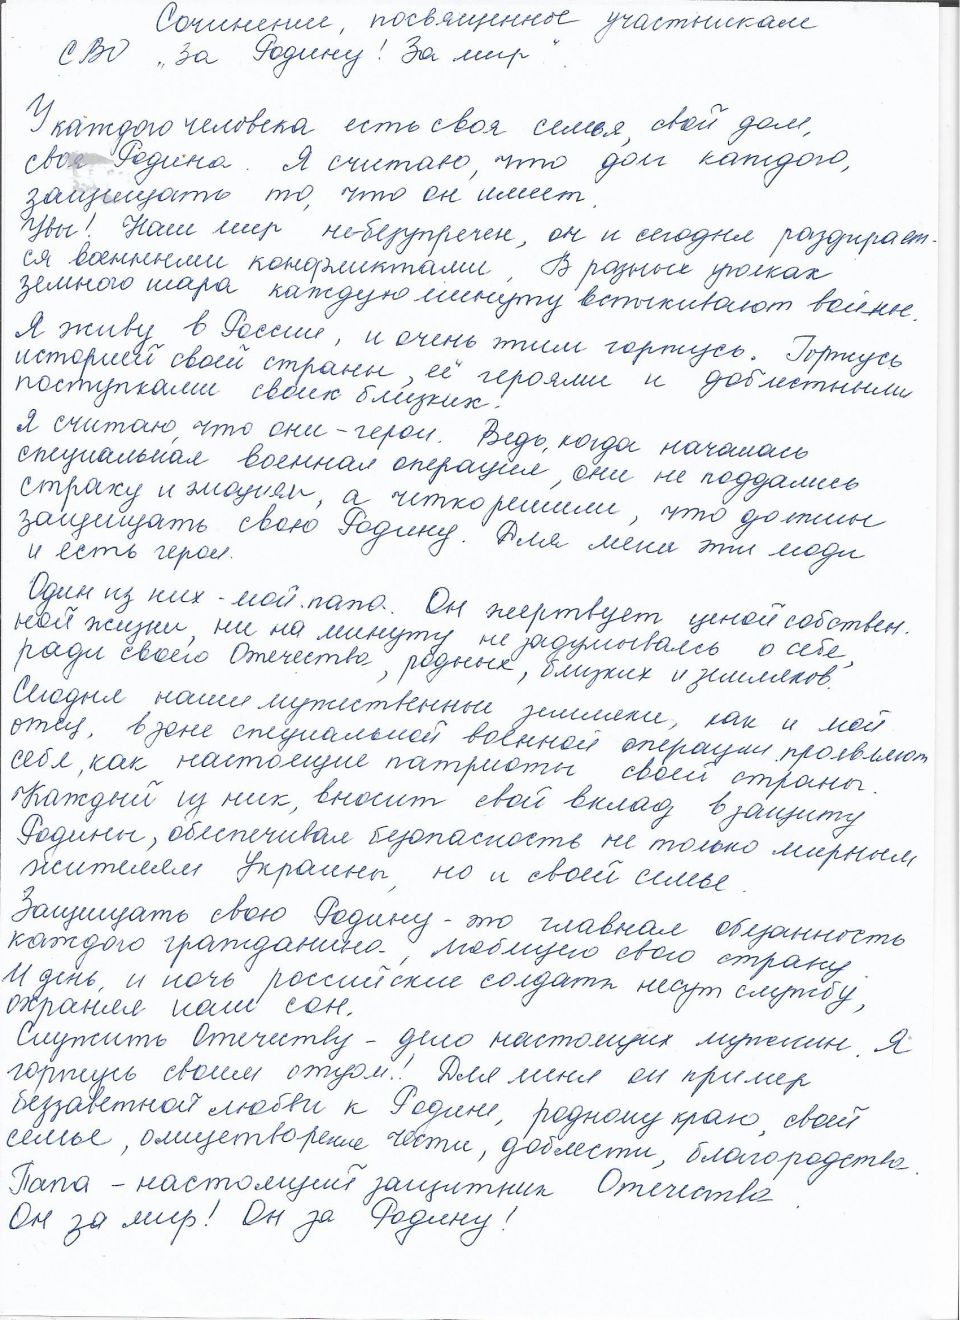 Сочинение, посвященное участникам
СВО „За Родину! За мир".
У каждого человека есть своя семья, свой дом,
своя Родина. Я считаю, что долг каждого,
защищать то, что он имеет.
Увы! Наш мир небезупречен, он и сегодня раздирает-
ся военными конфликтами. В разных уголках
земного шара каждую минуту вспыхивают войны.
Я живу в России, и очень этим горжусь. Горжусь
историей своей страны, её героями и доблестными
поступками своих близких.
Я считаю, что они - герои. Ведь, когда началась
специальная военная операция, они не поддались
страху и эмоциям, а четко решили, что должны
защищать свою Родину. Для меня эти люди
и есть герои.
Один из них - мой папа. Он жертвует ценой собствен-
ной жизни, ни на минуту не задумываясь о себе,
ради своего Отечества, родных, близких и земляков.
Сегодня наши мужественные земляки, как и мой
отец, в зоне специальной военной операции проявляют
себя, как настоящие патриоты своей страны.
Каждый из них, вносит свой вклад в защиту
Родины, обеспечивая безопасность не только мирным
жителям Украины, но и своей семье.
Защищать свою Родину - это главная обязанность
каждого гражданина, любящего свою страну.
И день, и ночь российские солдаты несут службу,
охраняя наш сон.
Служить Отечеству - дело настоящих мужчин. Я
горжусь своим отцом! Для меня он пример
беззаветной любви к Родине, родному краю, своей
семье, олицетворение чести, доблести, благородства.
Папа - настоящий защитник Отечества.
Он за мир! Он за Родину!